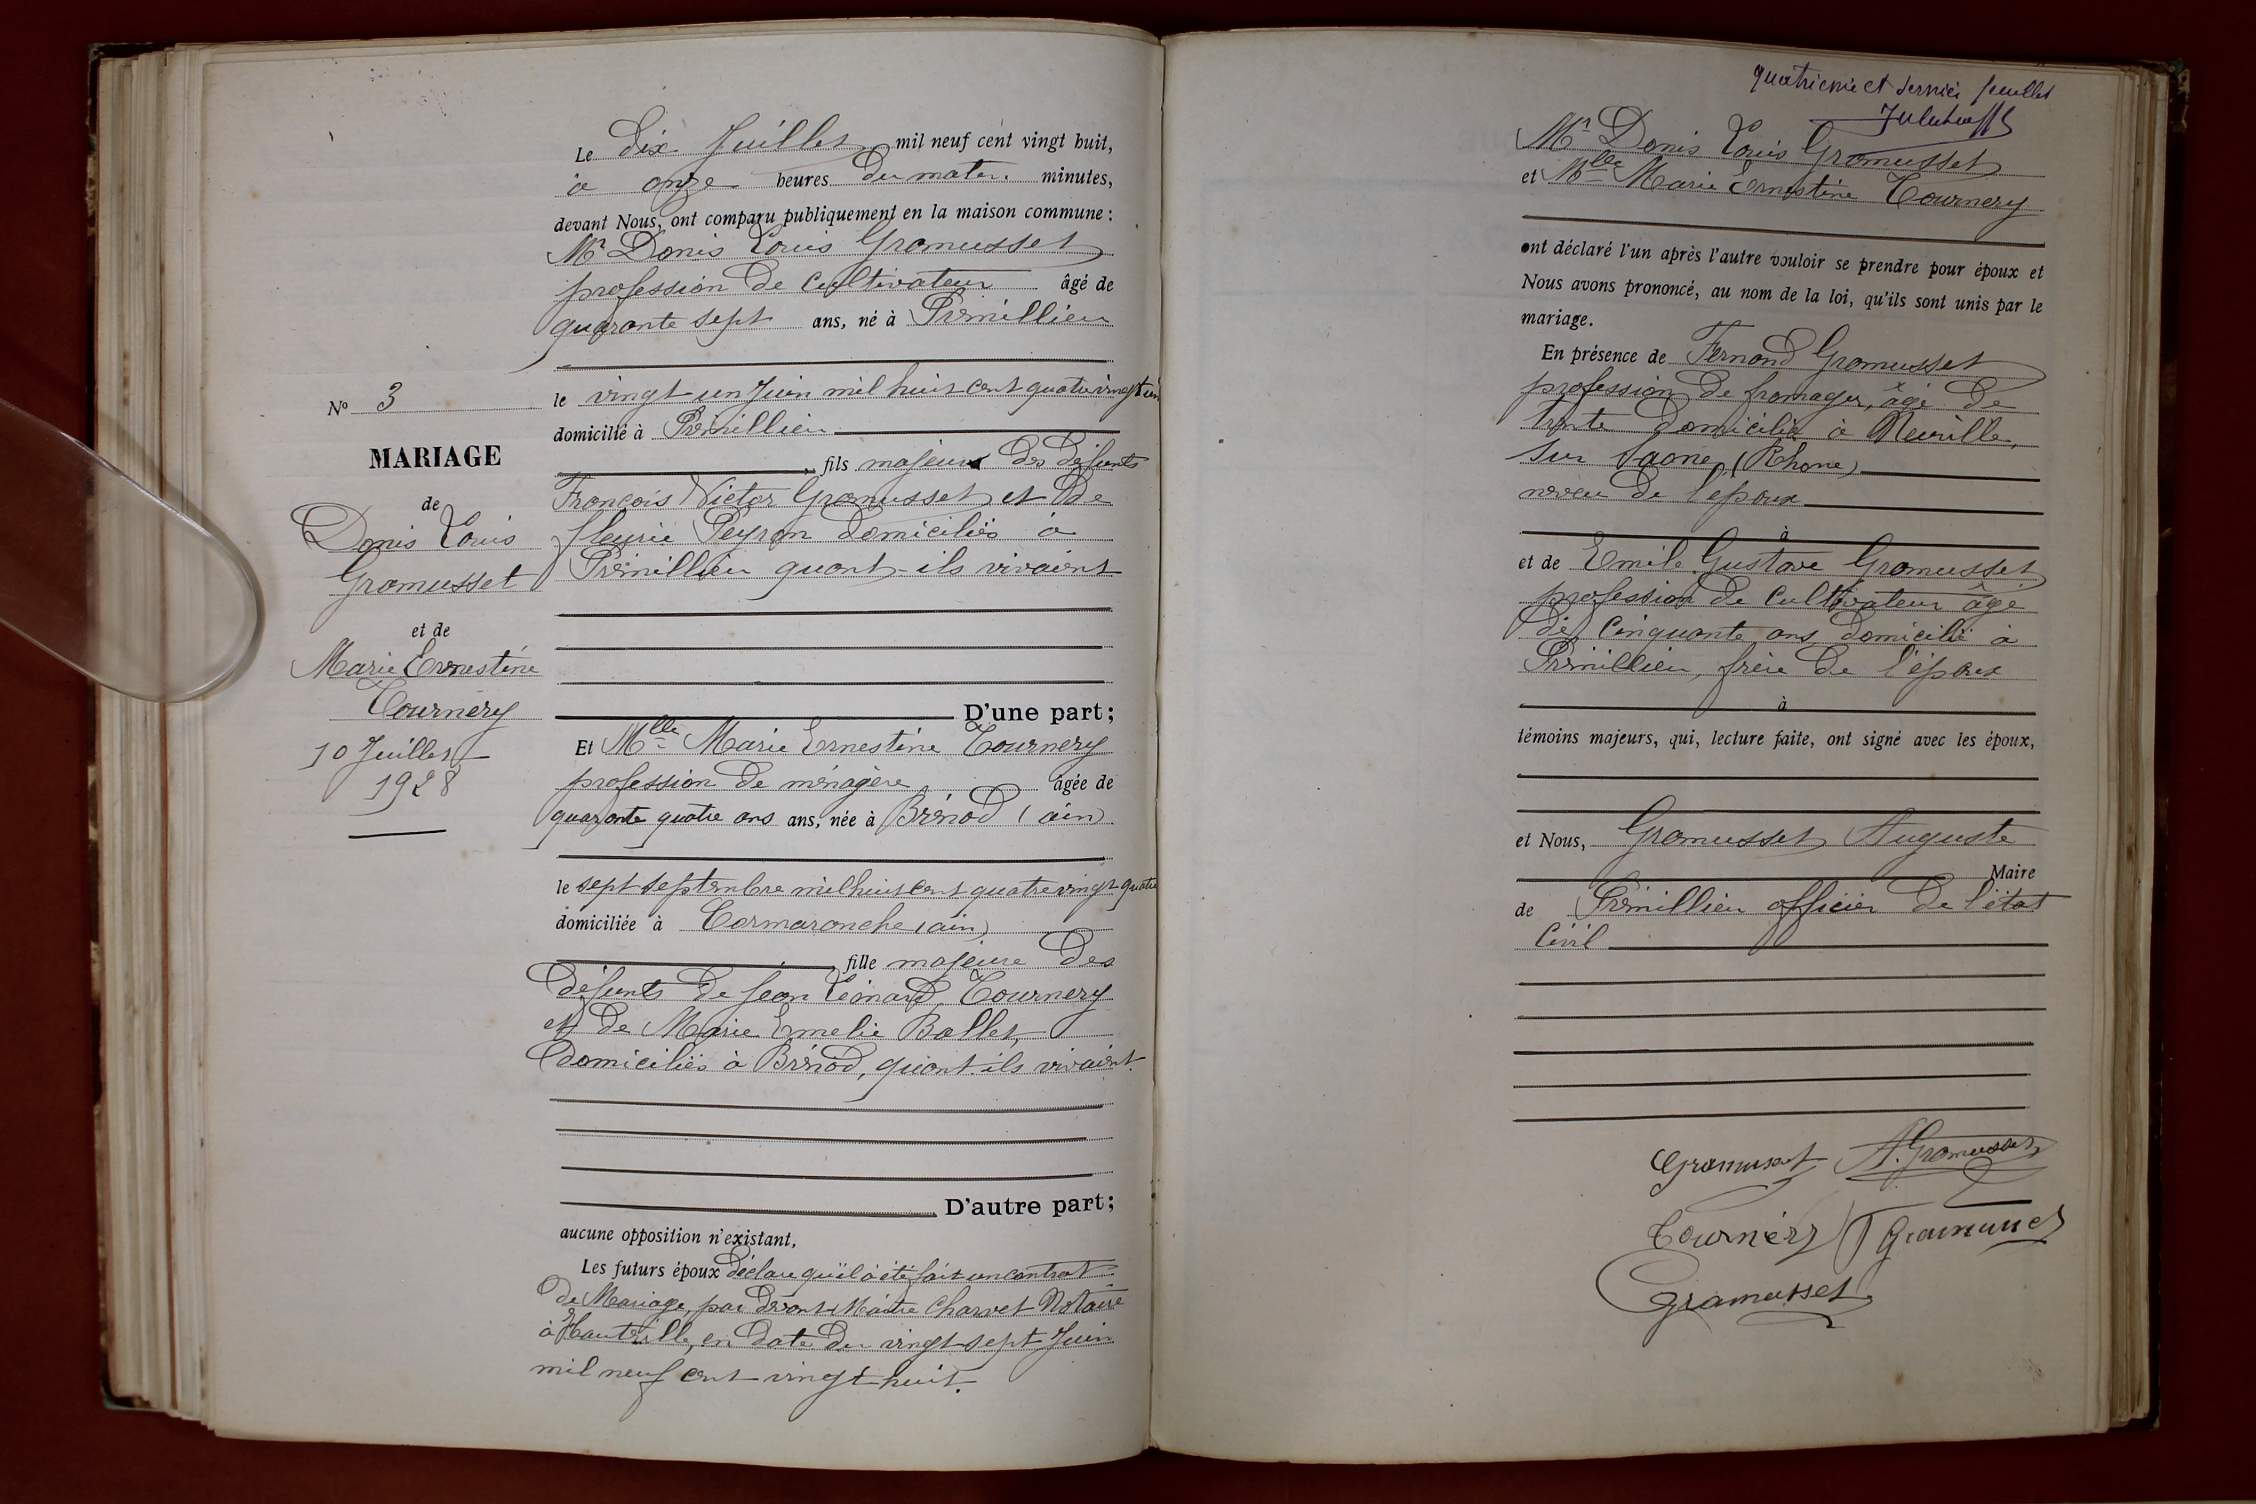 Le dix Juillet mil neuf cent vingt huit,
à onze heures du matin minutes,
devant Nous, ont comparu publiquement en la maison commune :
Mr Denis Louis Gramusset
profession de cultivateur âgé de
quarante sept ans, né à Prémillieu
le vingt un Juin mil huit cent quatre vingt un
domicilié à Prémillieu
fils majeur des défunts
François Victor Gramusset et de
fleurie Peyron domiciliés à
Prémillieu quant-ils vivaient
D'une part ;
Et Mlle Marie Ernestine Tournery
profession de ménagère âgée de
quarante quatre ans ans, née à Brénod (ain)
le sept septembre mil huit cent quatre vingt quatre
domiciliée à Cormaranche (ain)
fille majeure des
défunts de Jean Léonard Tournery
et de Marie Emelie Ballet,
domiciliés à Brénod, quant-ils vivaient.
D'autre part ;
aucune opposition n'existant,
Les futurs époux déclare qu'il à été fait un contrat
de Mariage, par devant Maitre Charvet Notaire
à Hauteville, en date du vingt sept Juin
mil neuf cent vingt huit.
No 3
MARIAGE
de
Denis Louis
Gramusset
et de
Marie Ernestine
Tournery
10 Juillet
1928
quatrieme et dernier feuillet
Mr Denis Louis Gramusset
et Mlle Marie Ernestine Tournery
ont déclaré l'un après l'autre vouloir se prendre pour époux et
Nous avons prononcé, au nom de la loi, qu'ils sont unis par le
mariage.
En présence de Fernand Gramusset
profession de fromager, âgé de
trente domicilié à Neuville,
sur Saone, (Rhone)
neveu de l'époux
à
et de Emile Gustave Gramusset
profession de cultivateur âgé
de cinquante ans domicilié à
Prémillieu, frère de l'époux
à
témoins majeurs, qui, lecture faite, ont signé avec les époux,
et Nous, Gramusset Auguste
Maire
de Prémillieu officier de l'état
Civil
Gramusset A. Gramusset
Tournéry F Gramusset
Gramusset